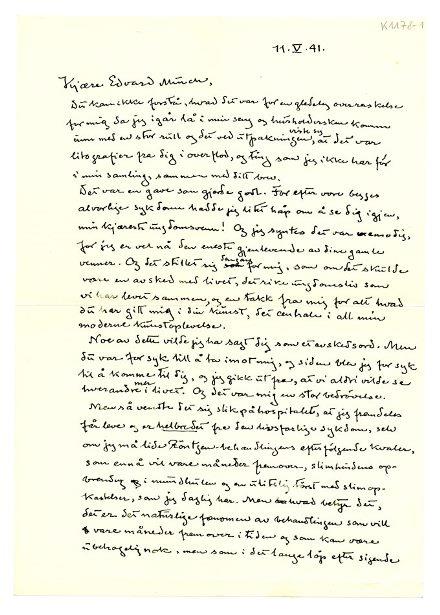 K1178-1
11.V.41.
Kjære Edvard Munch,
Du kan ikke forstå, hvad det var for en gledelig overraskelse
for mig da jeg igår lå i min seng og husholdersken kom
inn med en stor rull og det ved utpakningen viste sig, at det var
litografier fra dig i overflod, og ting som jeg ikke har før
i min samling, sammen med ditt brev.
Det var en gave som gjorde godt. For efter vore begges
alvorlige sykdomme hadde jeg litet håp om å se dig igjen,
min kjæreste ungdomsvenn! Og jeg syntes det var vemodig,
for jeg er vel nå den eneste gjenlevende av dine gamle
venner. Og det stillet sig for mig, som om det skulde
være en avsked med livet, det rike ungdomsliv som
vi har levet sammen, og en takk fra mig for alt hvad
du har gitt mig i din kunst, det centrale i all min
moderne kunstoplevelse.
Noe av dette vilde jeg ha sagt dig som et avskedsord. Men
du var for syk till å ta imot mig, og siden blev jeg for syk
til å komme til dig, og jeg gikk ut fra, at vi aldri vilde se
hverandre mer i livet. Og det var mig en stor bedrøvelse.
Men så vendte det sig slik på hospitalet, at jeg fremdeles
får leve og er helbredet fra den livsfarlige sykdom, selv
om jeg må lide Röntgen-behandlingens efterfølgende kvaler,
som ennå vil vare måneder fremover, slimhindens op-
i mundhulen og en ulidelig tørst med slimop-
kastelser, som jeg daglig har. Men hvad betyr det,
det er det naturlige fænomen av behandlingen som vill
vare måneder fremover i tiden og som kan være
ubehagelig nok, men som i det lange løp efter sigende